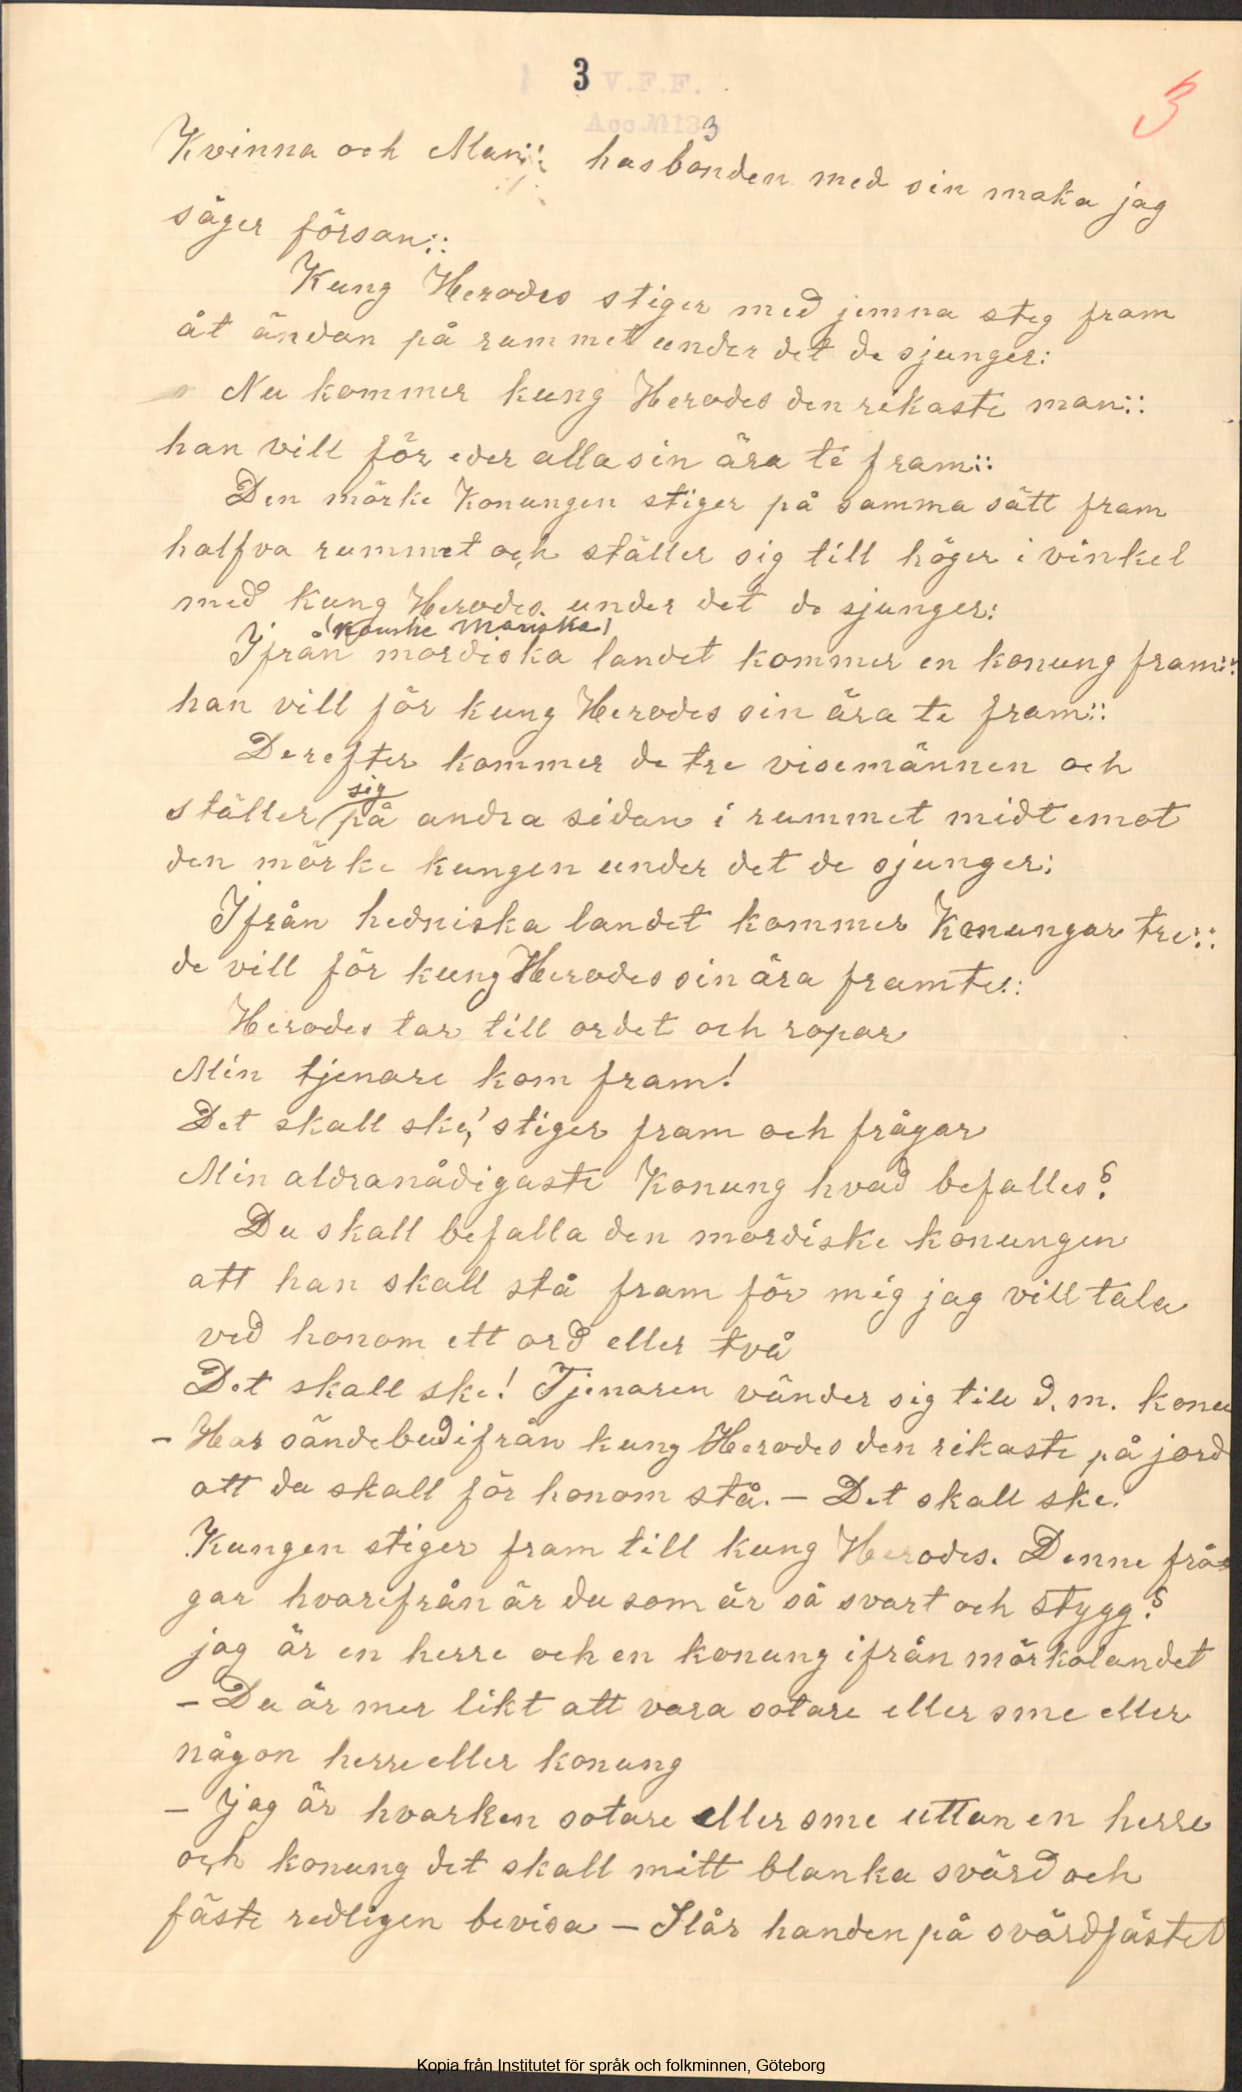 3 V.F.F.
Acc. M 133
3
Kvinna och Man:: hasbonden med sin maka jag
säger försan::
Kung Herodes stiger med jemna steg fram
åt ändan på rummet under det de sjunger:
Nu kommer kung Herodes den rikaste man::
han vill för eder alla sin ära te fram::
Den mörke Konungen stiger på samma sätt fram
halfva rummet och ställer sig till höger i vinkel
med kung Herodes. under det de sjunger:
(kanske Moriska)
Ifrån mordiska landet kommer en konung fram::
han vill för kung Herodes sin ära te fram::
Derefter kommer de tre visemännen och
sig
ställer på andra sidan i rummet midt emot
den mörke kungen under det de sjunger:
Ifrån hedniska landet kommer Konungar tre::
de vill för kung Herodes sin ära framte::
Herodes tar till ordet och ropar
Min tjenare kom fram!
Det skall ske,! stiger fram och frågar
Min aldranådigaste Konung hvad befalles?
Du skall befalla den mordiske konungen
att han skall stå fram för mig jag vill tala
ved honom ett ord eller två
Det skall ske! Tjenaren vänder sig till d. m. konu
- Har sändebud ifrån kung Herodes den rikaste på jord
att du skall för honom stå. - Det skall ske.
Kungen stiger fram till kung Herodes. Denne frå-
gar hvarifrån är du som är så svart och stygg?
jag är en herre och en konung ifrån mörkolandet
- Du är mer likt att vara sotare eller sme eller
någon herre eller konung
- Jag är hvarken sotare eller sme uttan en herre
och konung det skall mitt blanka svärd och
fäste redligen bevisa - Slår handen på svärdfästet
Kopia från Institutet för språk och folkminnen, Göteborg